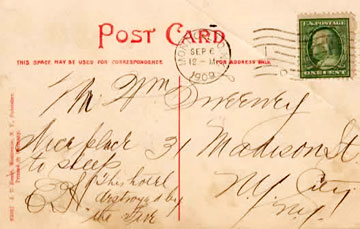 POST CARD
THIS SPACE MAY BE USED FOR CORRESPONDENCE.
FOR ADDRESS ONLY.
SEP 6
12 - M
1909
U.S. POSTAGE
ONE CENT
Mr Wm Sweeney
31 Madison St
N.Y. City
N.Y.
Nice place
to sleep
E.H.
This hotel
destroyed by
the Fire